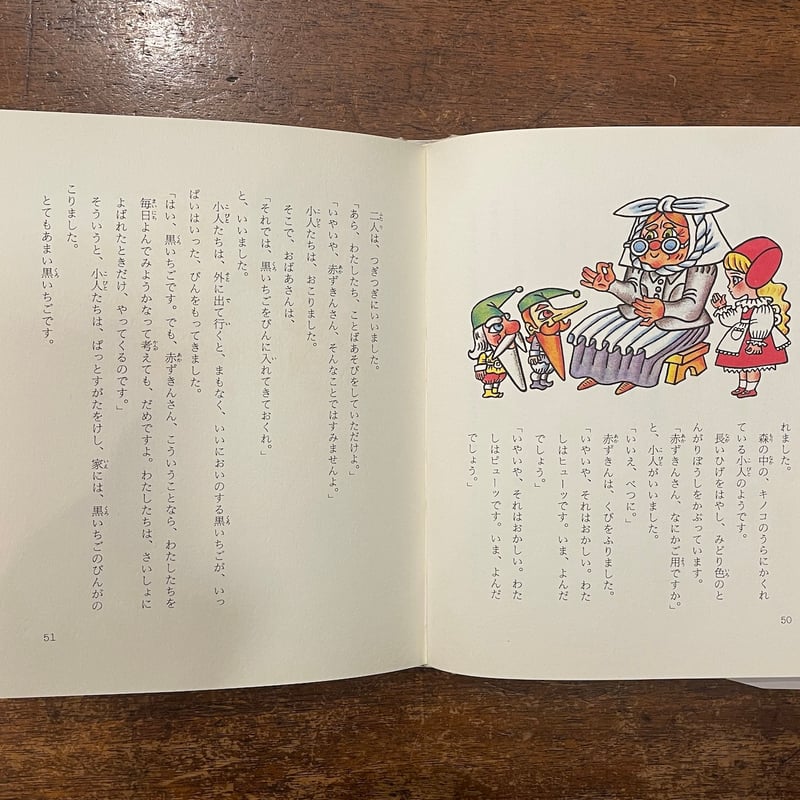 れました。
森の中の、キノコのうらにかくれ
ている小人のようです。
長いひげをはやし、みどり色のと
んがりぼうしをかぶっています。
「赤ずきんさん、なにかご用ですか。」
と、小人がいいました。
「いいえ、べつに。」
赤ずきんは、くびをふりました。
「いやいや、それはおかしい。わた
しはヒューッです。いま、よんだ
でしょう。」
「いやいや、それはおかしい。わた
しはピューッです。いま、よんだ
でしょう。」
50
二人は、つぎつぎにいいました。
「あら、わたしたち、ことばあそびをしていただけよ。」
「いやいや、赤ずきんさん、そんなことではすみませんよ。」
小人たちは、おこりました。
そこで、おばあさんは、
「それでは、黒いちごをびんに入れてきておくれ。」
と、いいました。
小人たちは、外に出て行くと、まもなく、いいにおいのする黒いちごが、いっ
ぱいはいった、びんをもってきました。
「はい、黒いちごです。でも、赤ずきんさん、こういうことなら、わたしたちを
毎日よんでみようかなって考えても、だめですよ。わたしたちは、さいしょに
よばれたときだけ、やってくるのです。」
そういうと、小人たちは、ぱっとすがたをけし、家には、黒いちごのびんがの
こりました。
とてもあまい黒いちごです。
51